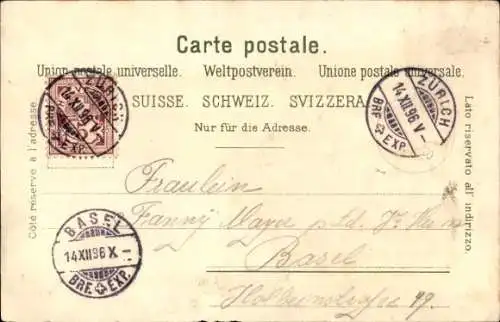 Carte postale.
Union postale universelle. Weltpostverein. Unione postale universale.
SUISSE. SCHWEIZ. SVIZZERA.
Nur für die Adresse.
Côté réservé à l'adresse.
Lato riservato all' indirizzo.
ZÜRICH
14 XII 96 V-
BRF. EXP.
ZÜRICH
14 XII 96 V-
BRF. EXP.
BASEL
14 XII 96 X-
BRF. EXP.
Fräulein
Fanny
Basel
Holbeinstrasse 79.